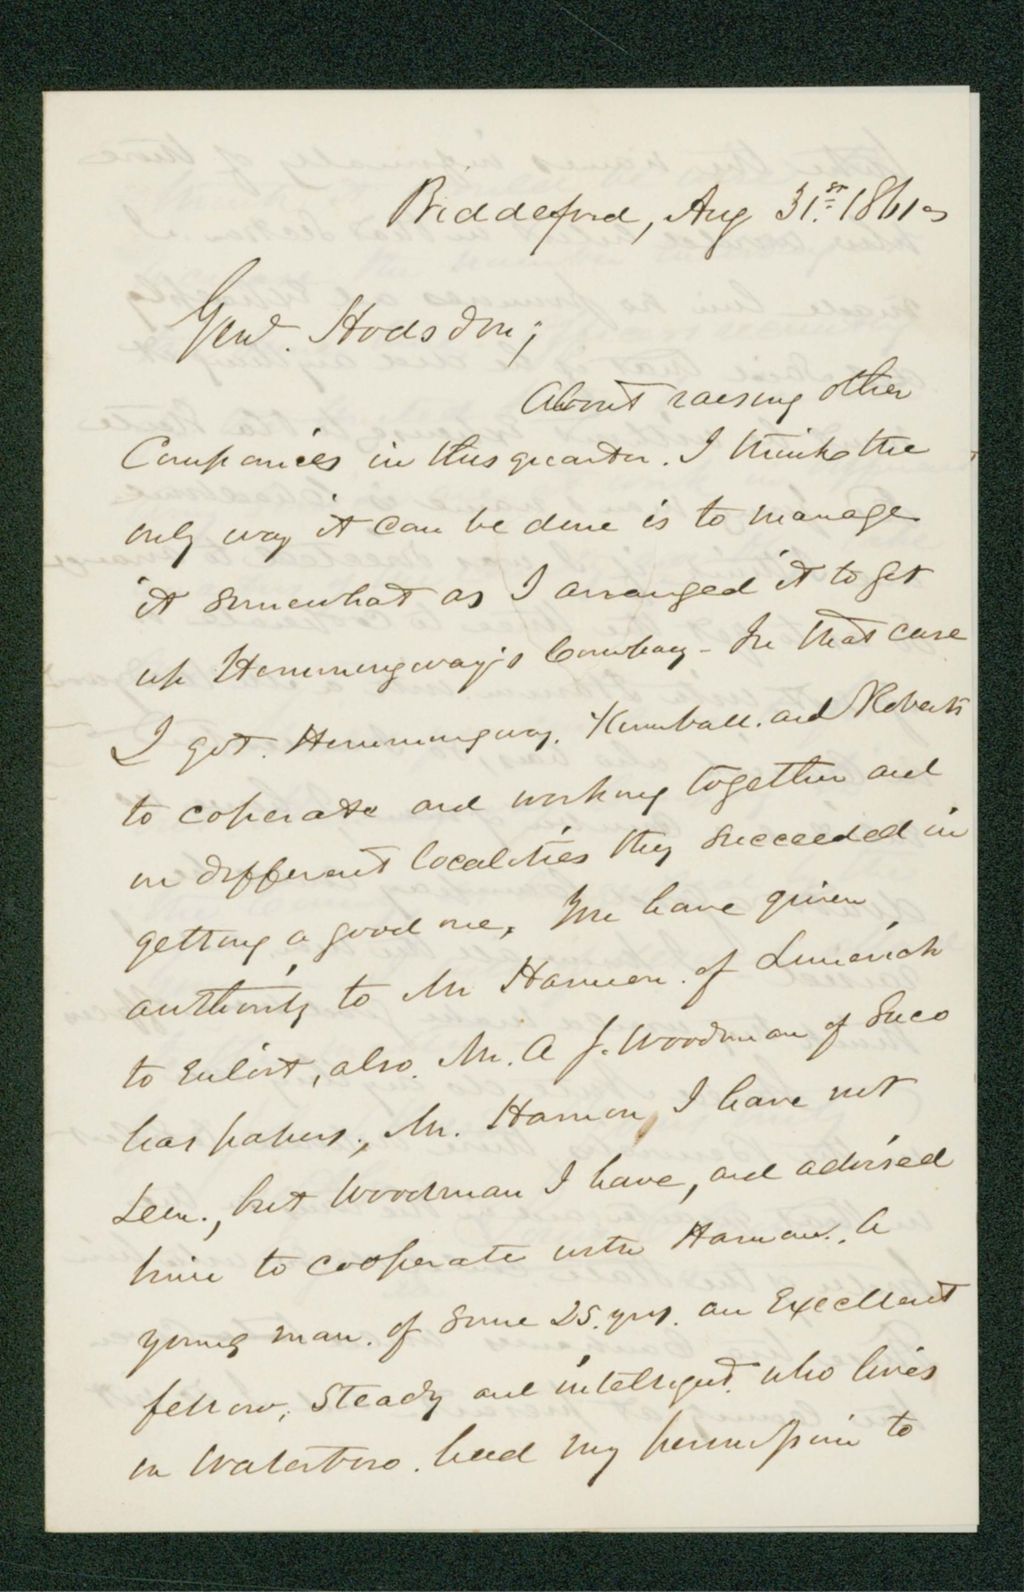 Biddeford, Aug 31st 1861
Genl. Hodsdon;
About raesing other
Companies in this quarter. I think the
only way it can be done is to manage
it somewhat as I arranged it to get
up Hemmingway's Company - In that case
I got. Hemmingway. Kimball. and Roberts
to coperate and working together and
in different localities they succeeded in
getting a good one, You have given
authority to Mr Harmon. of Limerick
to Enlist, also. Mr. A J. Woodman of Saco
has papers., Mr. Harmon, I have not
seen., but Woodman I have, and advised
him to cooperate with Harmon. A
young man. of some 25. yrs. an Excellent
fellow, Steady and intelligent. who lives
in Waterboro. had my permission to